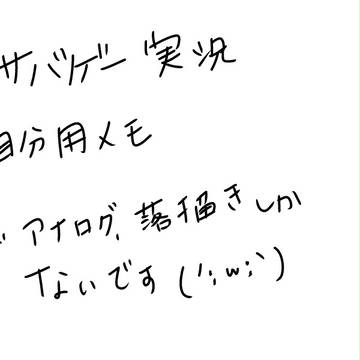 サバゲー実況
自分用メモ
アナログ、落描きしか
ないです(´;ω;`)